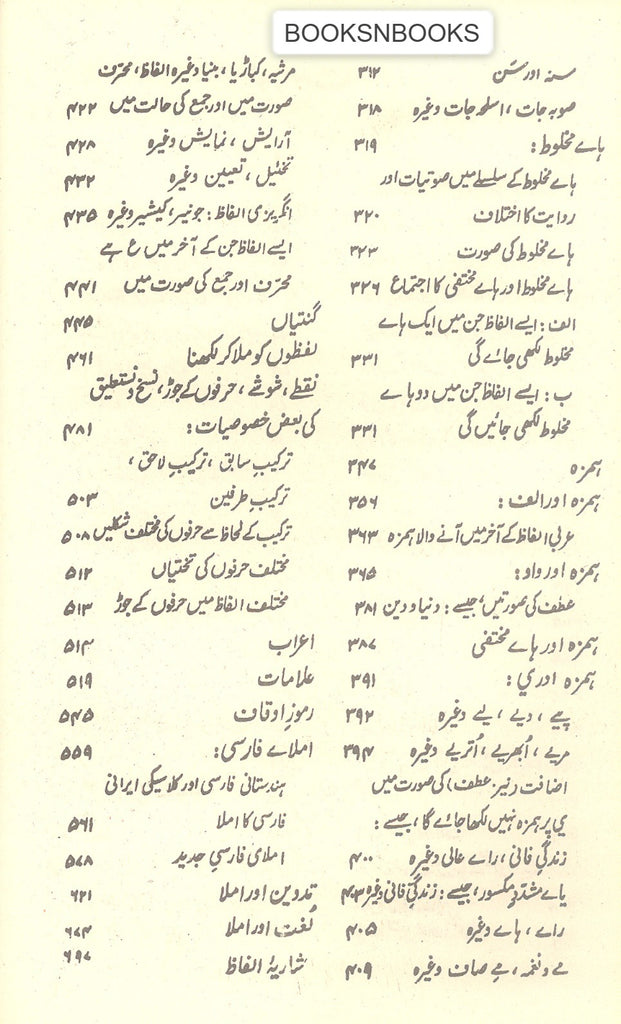 BOOKSNBOOKS
سنہ اور سَن ۳۱۲
صوبہ جات ، اسلحہ جات وغیرہ ۳۱۸
ہاے مخلوط : ۳۱۹
ہاے مخلوط کے سلسلے میں صوتیات اور
روایت کا اختلاف ۳۲۰
ہاے مخلوط کی صورت ۳۲۳
ہاے مخلوط اور ہاے مختفی کا اجتماع ۳۲۶
الف : ایسے الفاظ جن میں ایک ہاے
مخلوط لکھی جاے گی ۳۳۱
ب : ایسے الفاظ جن میں دو ہاے
مخلوط لکھی جائیں گی ۳۳۱
ہمزہ ۳۴۷
ہمزہ اور الف : ۳۵۶
عربی الفاظ کے آخر میں آنے والا ہمزہ ۳۶۳
ہمزہ اور واو : ۳۶۵
عطف کی صورتیں ، جیسے : دنیا و دین ۳۸۱
ہمزہ اور ہاے مختفی ۳۸۷
ہمزہ اور ي : ۳۹۱
پیے ، دیے ، لیے وغیرہ ۳۹۲
مریے ، اُبھریے ، اُتریے وغیرہ ۳۹۴
اضافت (نیز عطف) کی صورت میں
ي پر ہمزہ نہیں لکھا جاے گا ، جیسے :
زندگیِ فانی ، راے عالی وغیرہ ۴۰۰
یاے مشدّدِ مکسور ، جیسے : زندگیِ فانی وغیرہ ۴۰۳
راے ، ہاے وغیرہ ۴۰۵
مے و نغمہ ، مےِ صاف وغیرہ ۴۰۹
مرثیہ ، کباڑیا ، بنیا وغیرہ الفاظ ، محرّف
صورت میں اور جمع کی حالت میں ۴۲۲
آرایش ، نمایش وغیرہ ۴۲۸
تخئیل ، تعیین وغیرہ ۴۳۲
انگریزی الفاظ : جونیر ، کیشیر وغیرہ ۴۳۵
ایسے الفاظ جن کے آخر میں ع ہے
محرّف اور جمع کی صورت میں ۴۴۱
گنتیاں ۴۴۵
لفظوں کو ملا کر لکھنا ۴۶۱
نقطے ، شوشے ، حرفوں کے جوڑ ، نسخ و نستعلیق
کی بعض خصوصیات : ۴۸۱
ترکیبِ سابق ، ترکیبِ لاحق ،
ترکیبِ طرفین ۵۰۳
ترکیب کے لحاظ سے حرفوں کی مختلف شکلیں ۵۰۸
مختلف حرفوں کی تختیاں ۵۱۲
مختلف الفاظ میں حرفوں کے جوڑ ۵۱۳
اعراب ۵۱۴
علامات ۵۱۹
رموزِ اوقاف ۵۴۵
املاے فارسی : ۵۵۹
ہندستانی فارسی اور کلاسیکی ایرانی
فارسی کا املا ۵۶۱
املای فارسیِ جدید ۵۷۸
تدوین اور املا ۶۲۱
لُغت اور املا ۶۷۴
شاریۂ الفاظ ۶۹۷